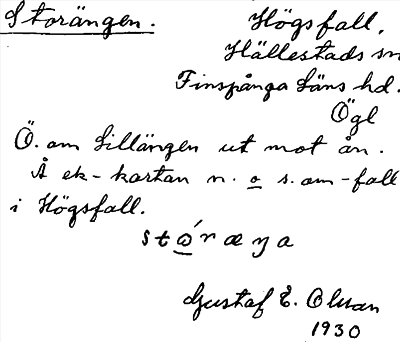 Storängen. Högsfall,
Hällestads sn
Finspånga läns hd.
Ögl
Ö. om Lillängen ut mot ån.
Å ek-kartan n. o s. om-fall
i Högsfall.
sto̲´ræŋa
Gustaf E. Olsson
1930